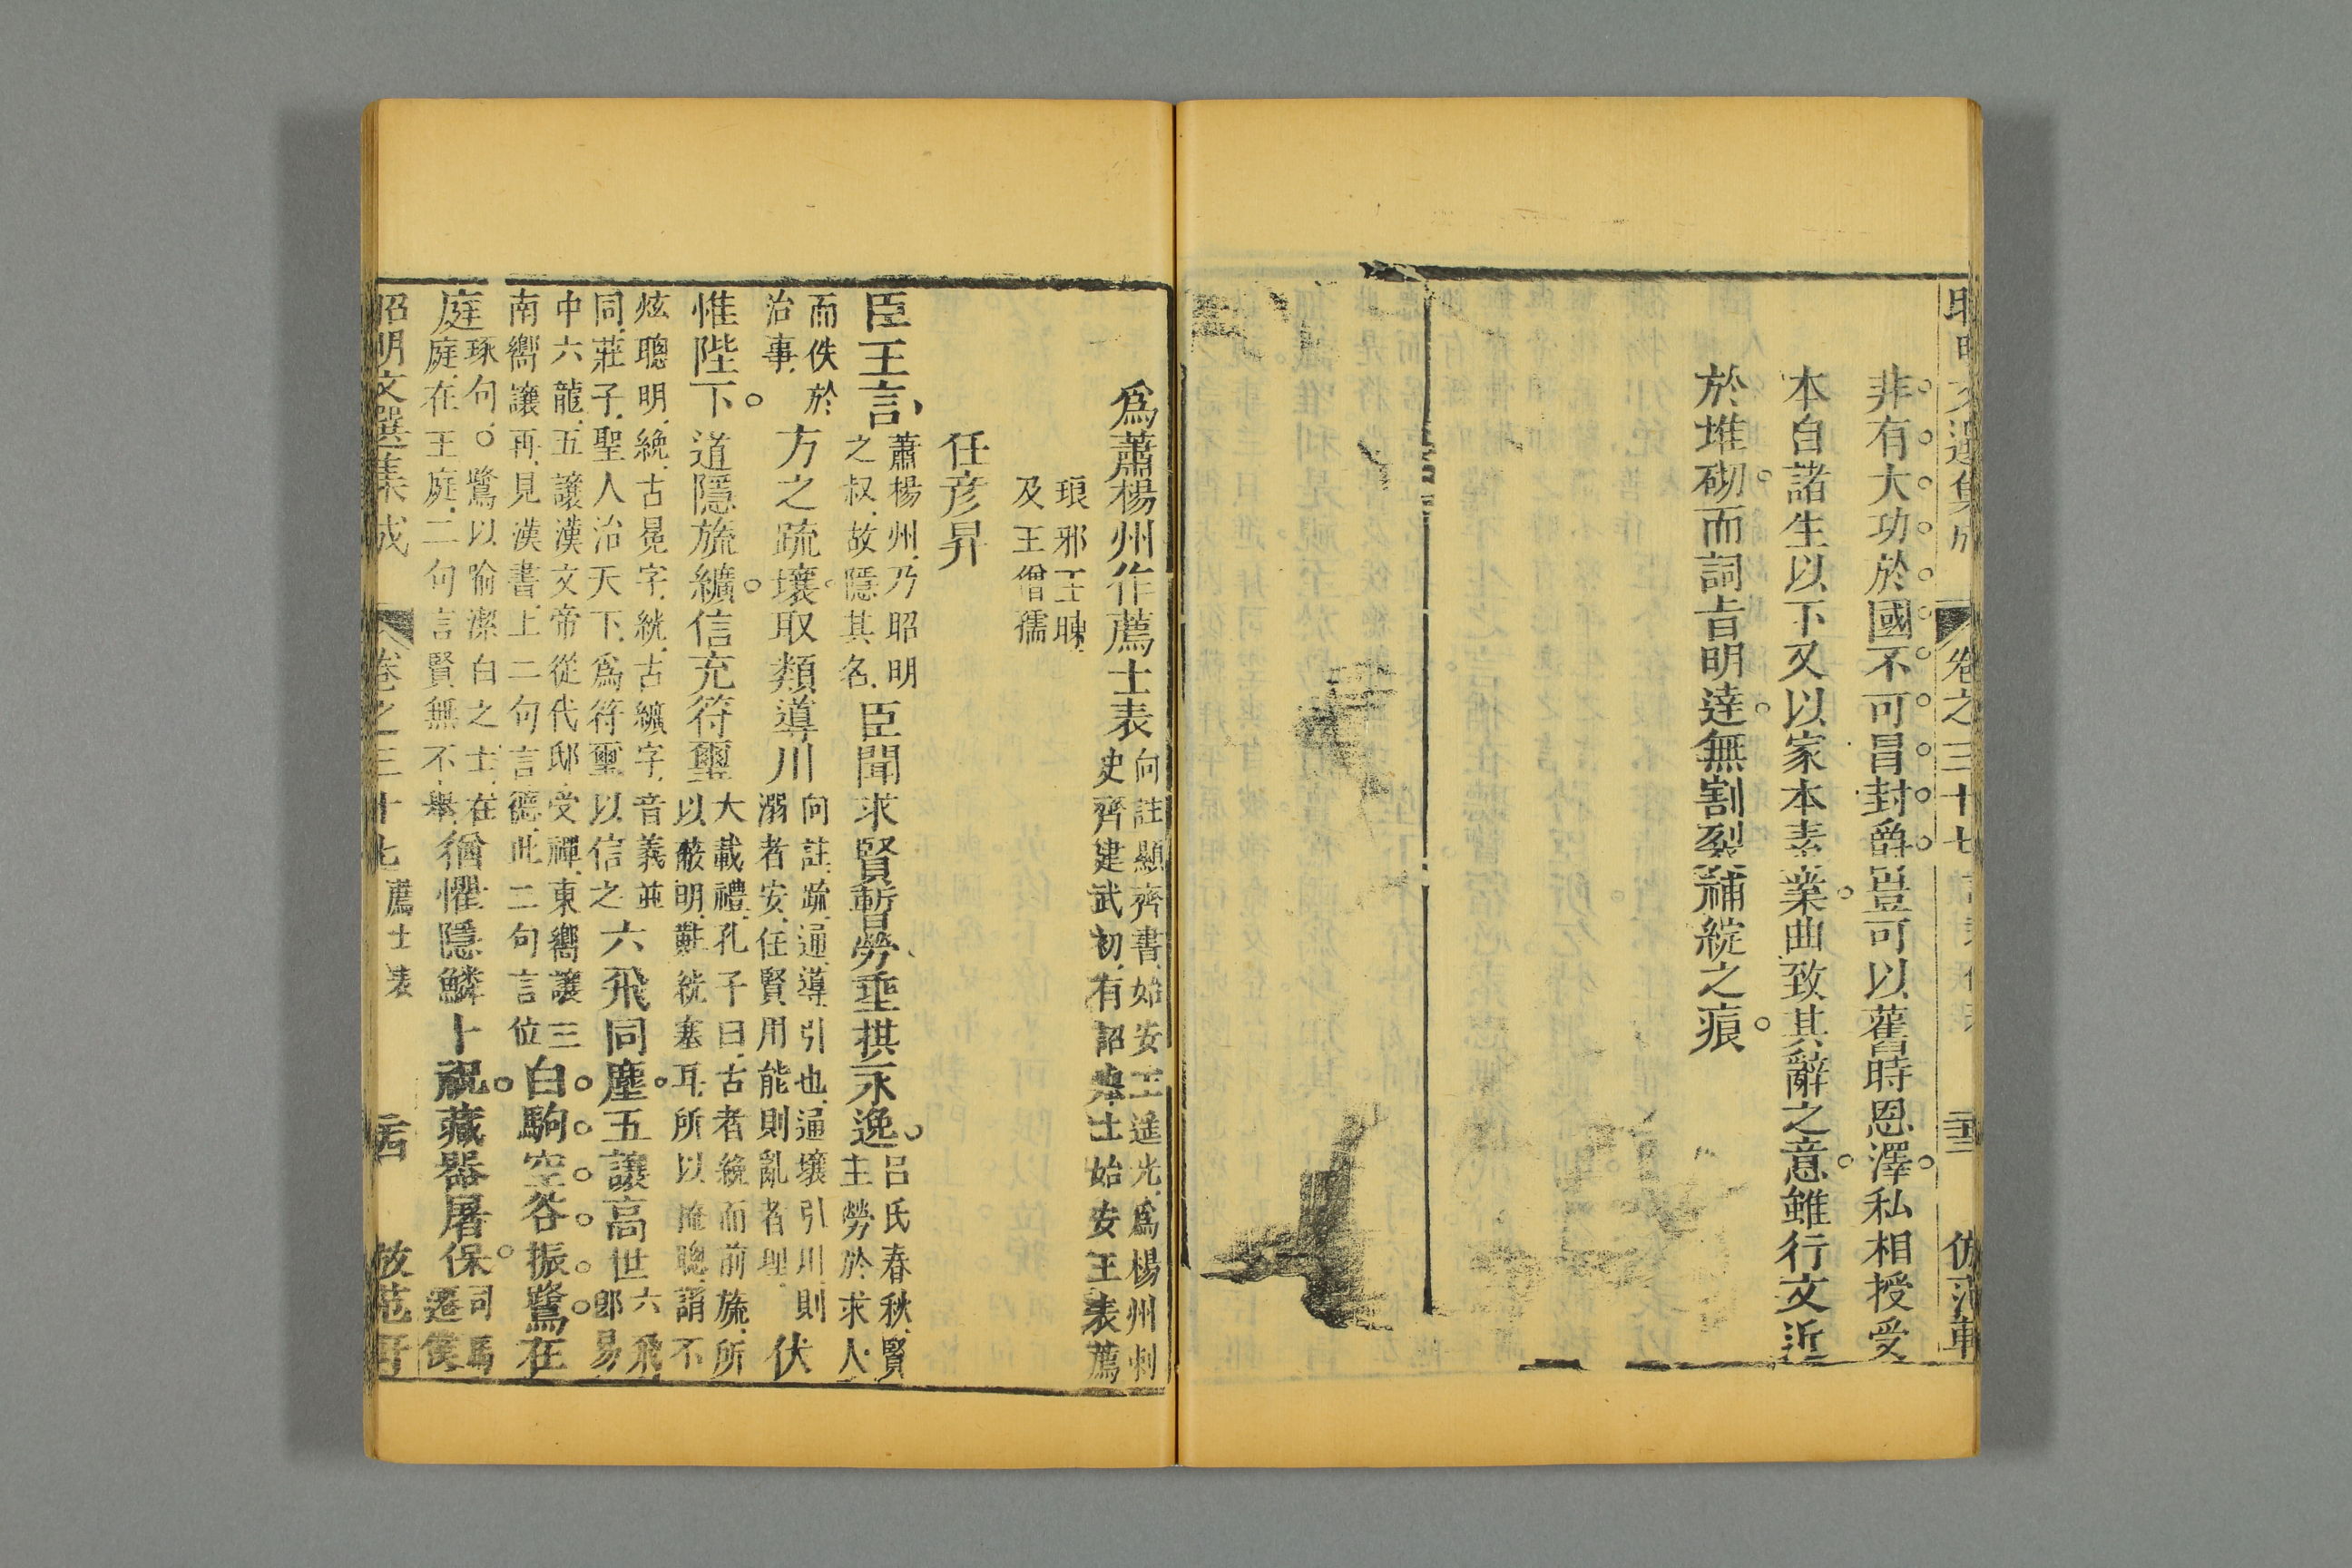 昭明文選集成 卷之三十七
非有大功於國不可冒封爵豈可以舊時恩澤私相授受
本自諸生以下又以家本素業曲致其辭之意雖行文近
於堆砌而詞旨明達無割裂補綻之痕
爲蕭楊州作薦士表 向註顯齊書始安王遙光爲楊州刺
史齊建武初有詔舉士始安王表薦
琅邪王暕
及王僧孺
任彦昇
臣王言 蕭楊州乃昭明
之叔故隱其名 臣聞求賢暫勞垂拱永逸 呂氏春秋賢
主勞於求人
而佚於
治事 方之疏壤取類導川 向註疏通導引也通壤引川則
溺者安任賢用能則亂者理 伏
惟陛下道隱旒纊信充符璽 大戴禮孔子曰古者絻而前旒所
以蔽明黈絖塞耳所以掩聰謂不
炫聰明絻古冕字絖古纊字音義並
同莊子聖人治天下爲符璽以信之 六飛同塵五讓高世 六飛
郎易
中六龍五讓漢文帝從代邸受禪東嚮讓三
南嚮讓再見漢書上二句言德此二句言位 白駒空谷振鷺在
庭 琢句。鷺以喻潔白之士在
庭在王庭二句言賢無不舉 猶懼隱鱗卜祝藏器屠保 司馬
遷僕
昭明文選集成 卷之三十七 薦士表